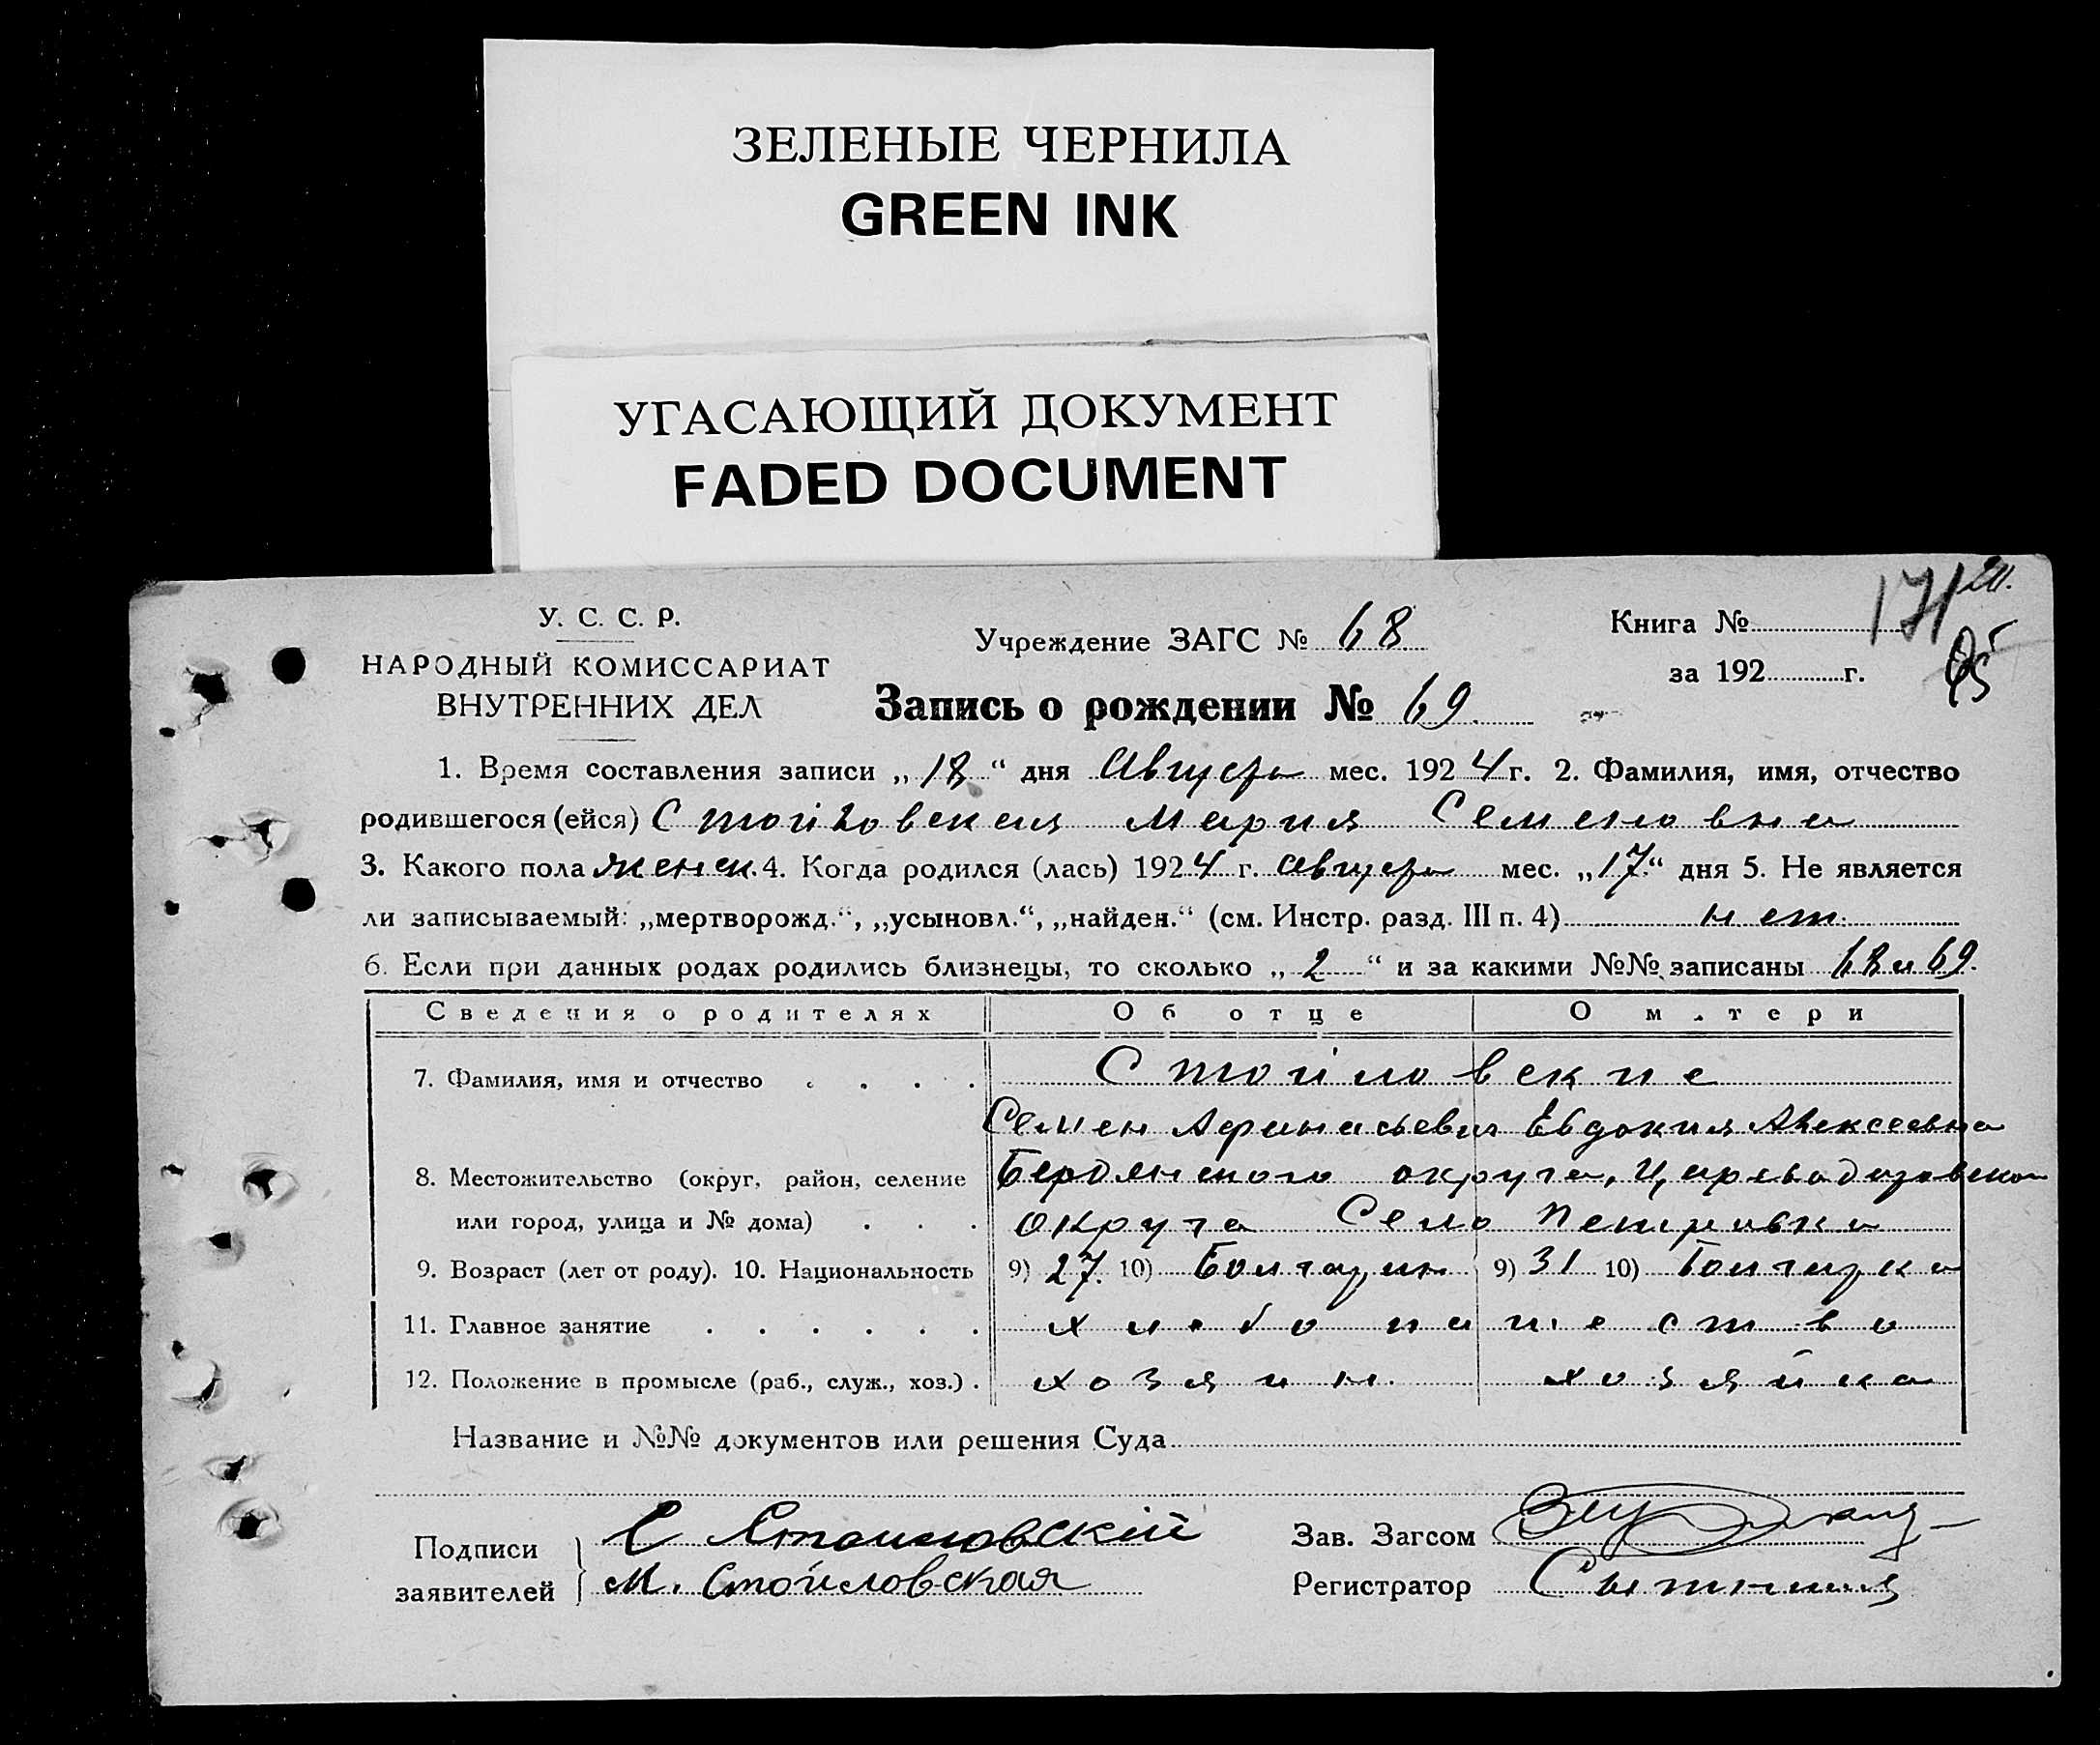 ЗЕЛЕНЫЕ ЧЕРНИЛА
GREEN INK
УГАСАЮЩИЙ ДОКУМЕНТ
FADED DOCUMENT
У. С. С. Р.
НАРОДНЫЙ КОМИССАРИАТ
ВНУТРЕННИХ ДЕЛ
Учреждение ЗАГС № 68
Книга № 171
за 192 г.
Запись о рождении № 69.
1. Время составления записи „ 18 “ дня Августа мес. 1924 г. 2. Фамилия, имя, отчество
родившегося (ейся) Стойловская Мария Семеновна
3. Какого пола женск. 4. Когда родился (лась) 1924 г. августа мес. „17.“ дня 5. Не является
ли записываемый: „мертворожд.“, „усыновл.“, „найден.“ (см. Инстр. разд. III п. 4) нет.
6. Если при данных родах родились близнецы, то сколько „ 2 “ и за какими №№ записаны 68 и 69.
Сведения о родителях Об отце О матери
7. Фамилия, имя и отчество . . . . Стойловские
Семен Афанасьевич Евдокия Алексеевна
8. Местожительство (округ, район, селение Бердянского округа,
или город, улица и № дома) . . . округа Село Петровка
9. Возраст (лет от роду). 10. Национальность 9) 27. 10) Болгарин 9) 31 10) Болгарка
11. Главное занятие . . . . . . хлебопашество
12. Положение в промысле (раб., служ., хоз.) . хозяин. хозяйка
Название и №№ документов или решения Суда
Подписи
заявителей
С Стоиловский
М. Стойловская
Зав. Загсом
Регистратор